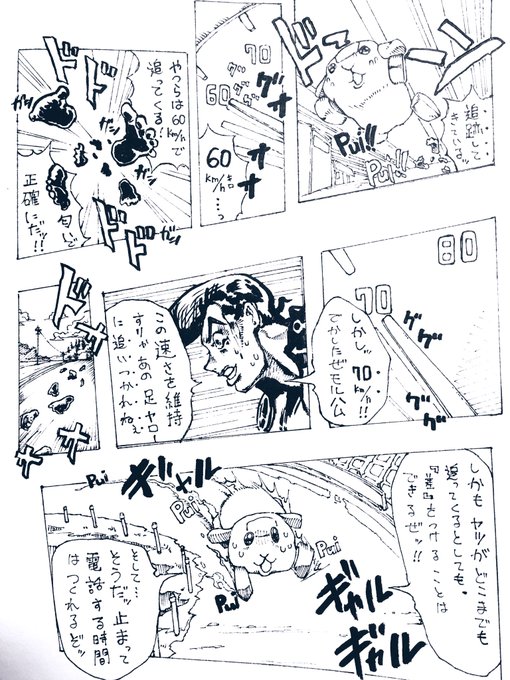 ドドド
バン
追跡して
きているッ
Pui!!
Pui!!
70
60
グググ
オオオオ
60
km/hキロ
…っ
ドドド
やつらは60
km/hで
追ってくる!
ガッ
ガッ
ガッ
ガッ
匂いで
正確にだッ!!
ドドド
80
70
ググ
しかしッ
70km/h!!
でかしたぜモルル公
グググ
この速さを維持
すりゃあの足ヤロー
に追いつかれねぇ
ドドドド
しかもヤツがどこまでも
追ってくるとしても、
『差』をつけることは
できるぜッ!!
Pui
ギャル
Pui
Pui
Pui
ギャル
ギャル
そして…
そうだッ止まって
電話する時間
はつくれるぞッ